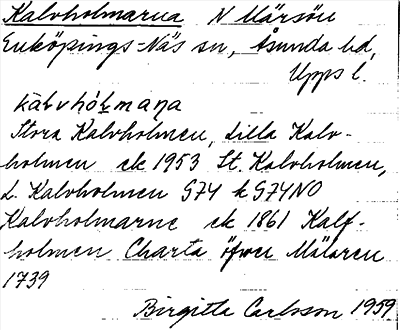 Kalvholmarna N Märsön
Enköpings-Näs sn, Åsunda hd,
Upps l.
kàlvhól̥maṇa
Stora Kalvholmen, Lilla Kalv-
holmen ek 1953 St. Kalvholmen,
L. Kalvholmen G74 k G74NO
Kalvholmarne ek 1861 Kalf-
holmen Charta öfver Mälaren
1739
Birgitta Carlsson 1959